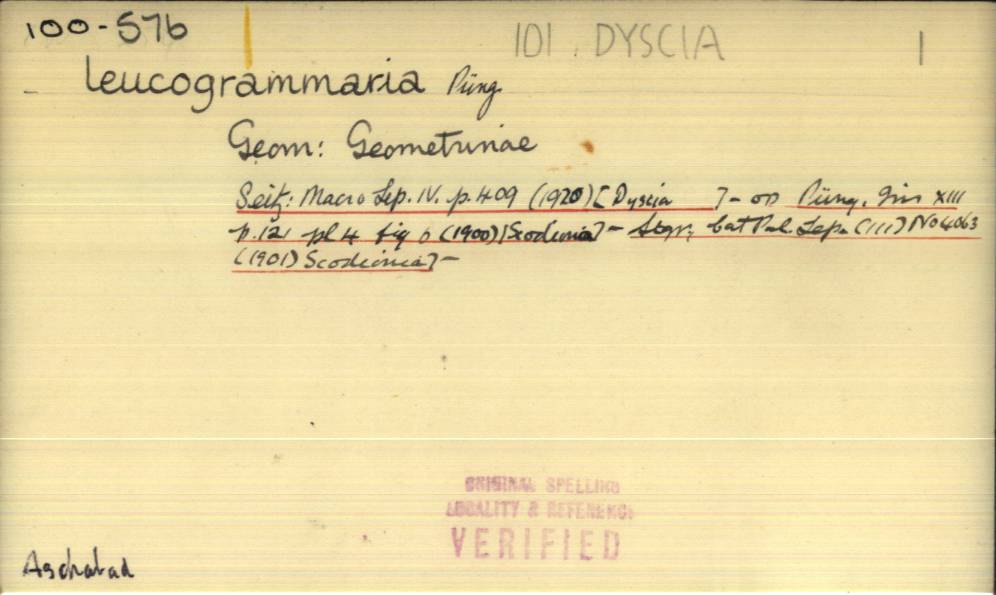 100-576
101. DYSCIA 1
leucogrammaria Püng.
Geom: Geometrinae
Seitz: Macro Lep. IV. p.409 (1920) [Dyscia ] - on Püng. Iris XIII
p.121 pl 4 fig 6 (1900) [Scodionia] - Stgr. Cat Pal. Lep. (III) No 4063
(1901) Scodionia] -
ORIGINAL SPELLING
LOCALITY & REFERENCE
VERIFIED
Aschabad